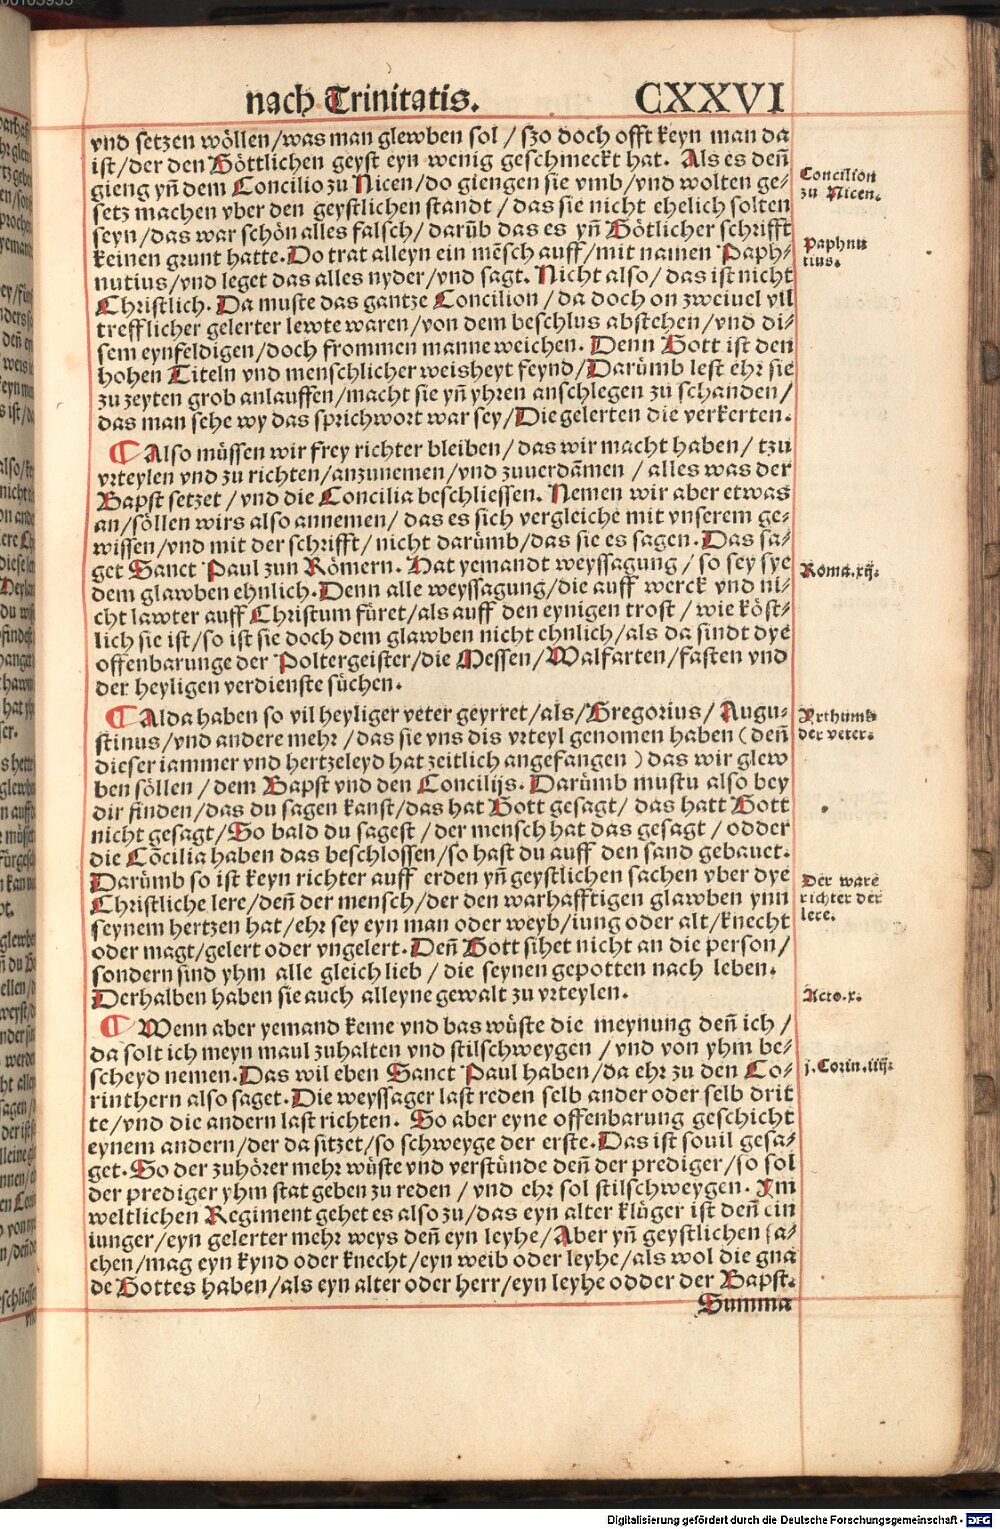 nach Trinitatis. CXXVI
vnd setzen wöllen/was man glewben sol/szo doch offt keyn man da
ist/der den Göttlichen geyst eyn wenig geschmeckt hat. Als es deñ
gieng yñ dem Concilio zu Nicen/do giengen sie vmb/vnd wolten ge⸗
setz machen vber den geystlichen standt/das sie nicht ehelich solten
seyn/das war schön alles falsch/darüb das es yñ Götlicher schrifft
keinen grunt hatte. Do trat alleyn ein mẽsch auff/mit namen Paph⸗
nutius/vnd leget das alles nyder/vnd sagt. Nicht also/das ist nicht
Christlich. Da muste das gantze Concilion/da doch on zweiuel vil
trefflicher gelerter lewte waren/von dem beschlus abstehen/vnd di⸗
sem eynfeldigen/doch frommen manne weichen. Denn Gott ist den
hohen Titeln vnd menschlicher weisheyt feynd/Darümb lest ehr sie
zu zeyten grob anlauffen/macht sie yñ yhren anschlegen zu schanden/
das man sehe wy das sprichwort war sey/Die gelerten die verkerten.
Concilion
zu Nicen.
Paphnu
tius.
¶ Also müssen wir frey richter bleiben/das wir macht haben/tzu
vrteylen vnd zu richten/anzunemen/vnd zuuerdãmen/alles was der
Bapst setzet/vnd die Concilia beschliessen. Nemen wir aber etwas
an/söllen wirs also annemen/das es sich vergleiche mit vnserem ge⸗
wissen/vnd mit der schrifft/nicht darümb/das sie es sagen. Das sa⸗
get Sanct Paul zun Römern. Hat yemandt weyssagung/so sey sye
dem glawben ehnlich. Denn alle weyssagung/die auff werck vnd ni⸗
cht lawter auff Christum füret/als auff den eynigen trost/wie köst⸗
lich sie ist/so ist sie doch dem glawben nicht ehnlich/als da sindt dye
offenbarunge der Poltergeister/die Messen/Walfarten/fasten vnd
der heyligen verdienste süchen.
Roma.xij.
¶ Alda haben so vil heyliger veter geyrret/als/Gregorius/Augu⸗
stinus/vnd andere mehr/das sie vns dis vrteyl genomen haben (deñ
dieser iammer vnd hertzeleyd hat zeitlich angefangen) das wir glew
ben söllen/dem Bapst vnd den Concilijs. Darümb mustu also bey
dir finden/das du sagen kanst/das hat Gott gesagt/das hatt Gott
nicht gesagt/So bald du sagest/der mensch hat das gesagt/odder
die Cõcilia haben das beschlossen/so hast du auff den sand gebauet.
Darümb so ist keyn richter auff erden yñ geystlichen sachen vber dye
Christliche lere/deñ der mensch/der den warhafftigen glawben ynn
seynem hertzen hat/ehr sey eyn man oder weyb/iung oder alt/knecht
oder magt/gelert oder vngelert. Deñ Gott sihet nicht an die person/
sondern sind yhm alle gleich lieb/die seynen gepotten nach leben.
Derhalben haben sie auch alleyne gewalt zu vrteylen.
Yrthumb
der veter.
Der ware
richter der
lere.
Acto.x.
¶ Wenn aber yemand keme vnd bas wüste die meynung deñ ich/
da solt ich meyn maul zuhalten vnd stilschweygen/vnd von yhm be⸗
scheyd nemen. Das wil eben Sanct Paul haben/da ehr zu den Co⸗
rinthern also saget. Die weyssager last reden selb ander oder selb drit
te/vnd die andern last richten. So aber eyne offenbarung geschicht
eynem andern/der da sitzet/so schweyge der erste. Das ist souil gesa⸗
get. So der zuhörer mehr wüste vnd verstünde deñ der prediger/so sol
der prediger yhm stat geben zu reden/vnd ehr sol stilschweygen. Ym
weltlichen Regiment gehet es also zu/das eyn alter klüger ist deñ ein
iunger/eyn gelerter mehr weys deñ eyn leyhe/Aber yñ geystlichen sa⸗
chen/mag eyn kynd oder knecht/eyn weib oder leyhe/als wol die gna
de Gottes haben/als eyn alter oder herr/eyn leyhe odder der Bapst.
Summa
j.Corin.iiij.
Digitalisierung gefördert durch die Deutsche Forschungsgemeinschaft - DFG